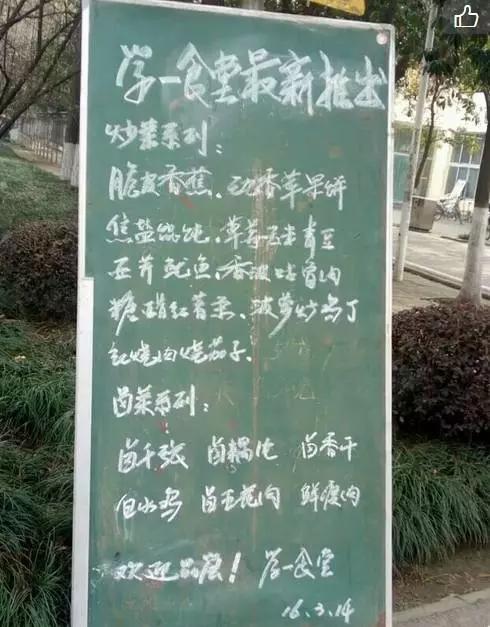 学一食堂最新推出
炒菜系列:
脆皮香蕉、 香苹果饼
焦盐馄饨、草莓玉米青豆
鱿鱼、香 骨肉
糖醋红薯条、菠萝炒鸡丁
红烧肉烧茄子
卤菜系列:
卤千张 卤藕 卤香干
白水鸡 卤五花肉 鲜瘦肉
欢迎品尝! 学一食堂
16.3.14